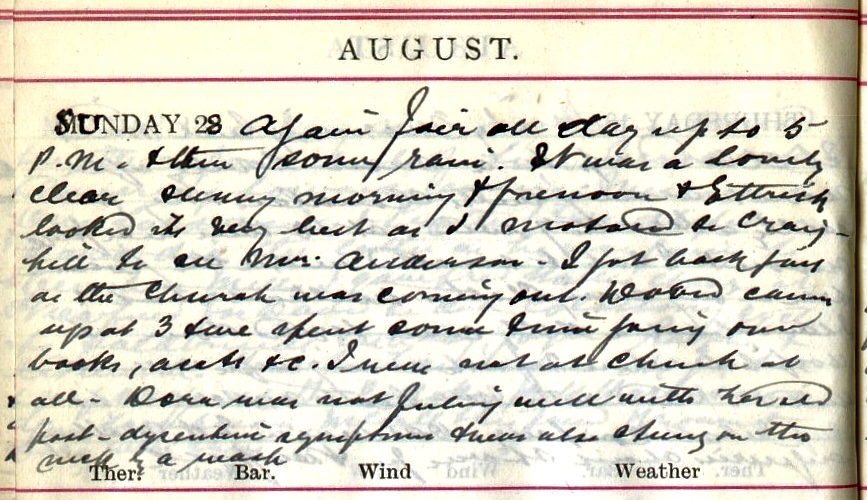 AUGUST.
SUNDAY 28 Again fair all day up to 5
P.M. & then some rain. It was a lovely
clear sunny morning & forenoon & Ettrick
looked its very best as I motored to Craig-
hill to see Mrs. Anderson - I got back just
as the Church was coming out. David came
up at 3 & we spent some time going over
books, accts &c. I was not at Church at
all - Dora was not feeling well with her old
post-dysenteric symptoms & was also stung on the
neck by a wasp
Ther. Bar. Wind Weather